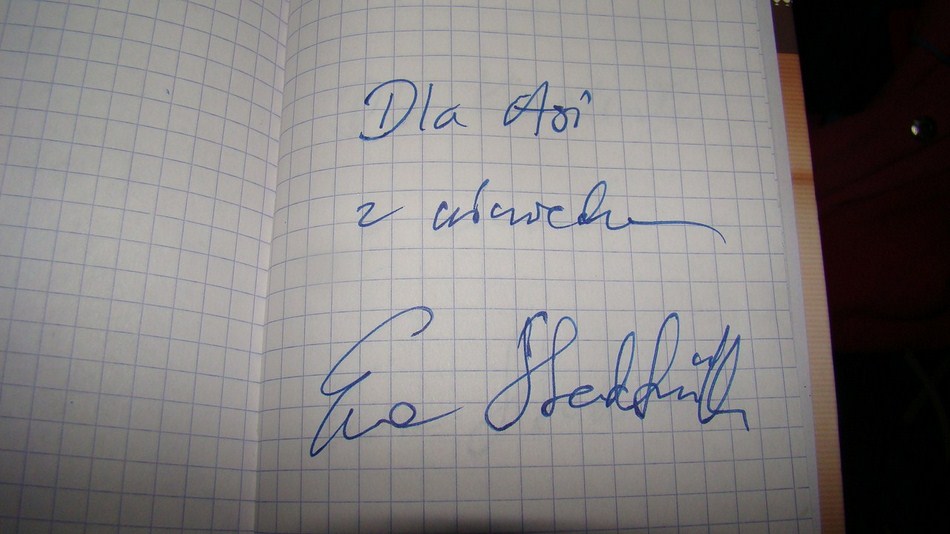 Dla Asi
z uśmiechem
Ewa